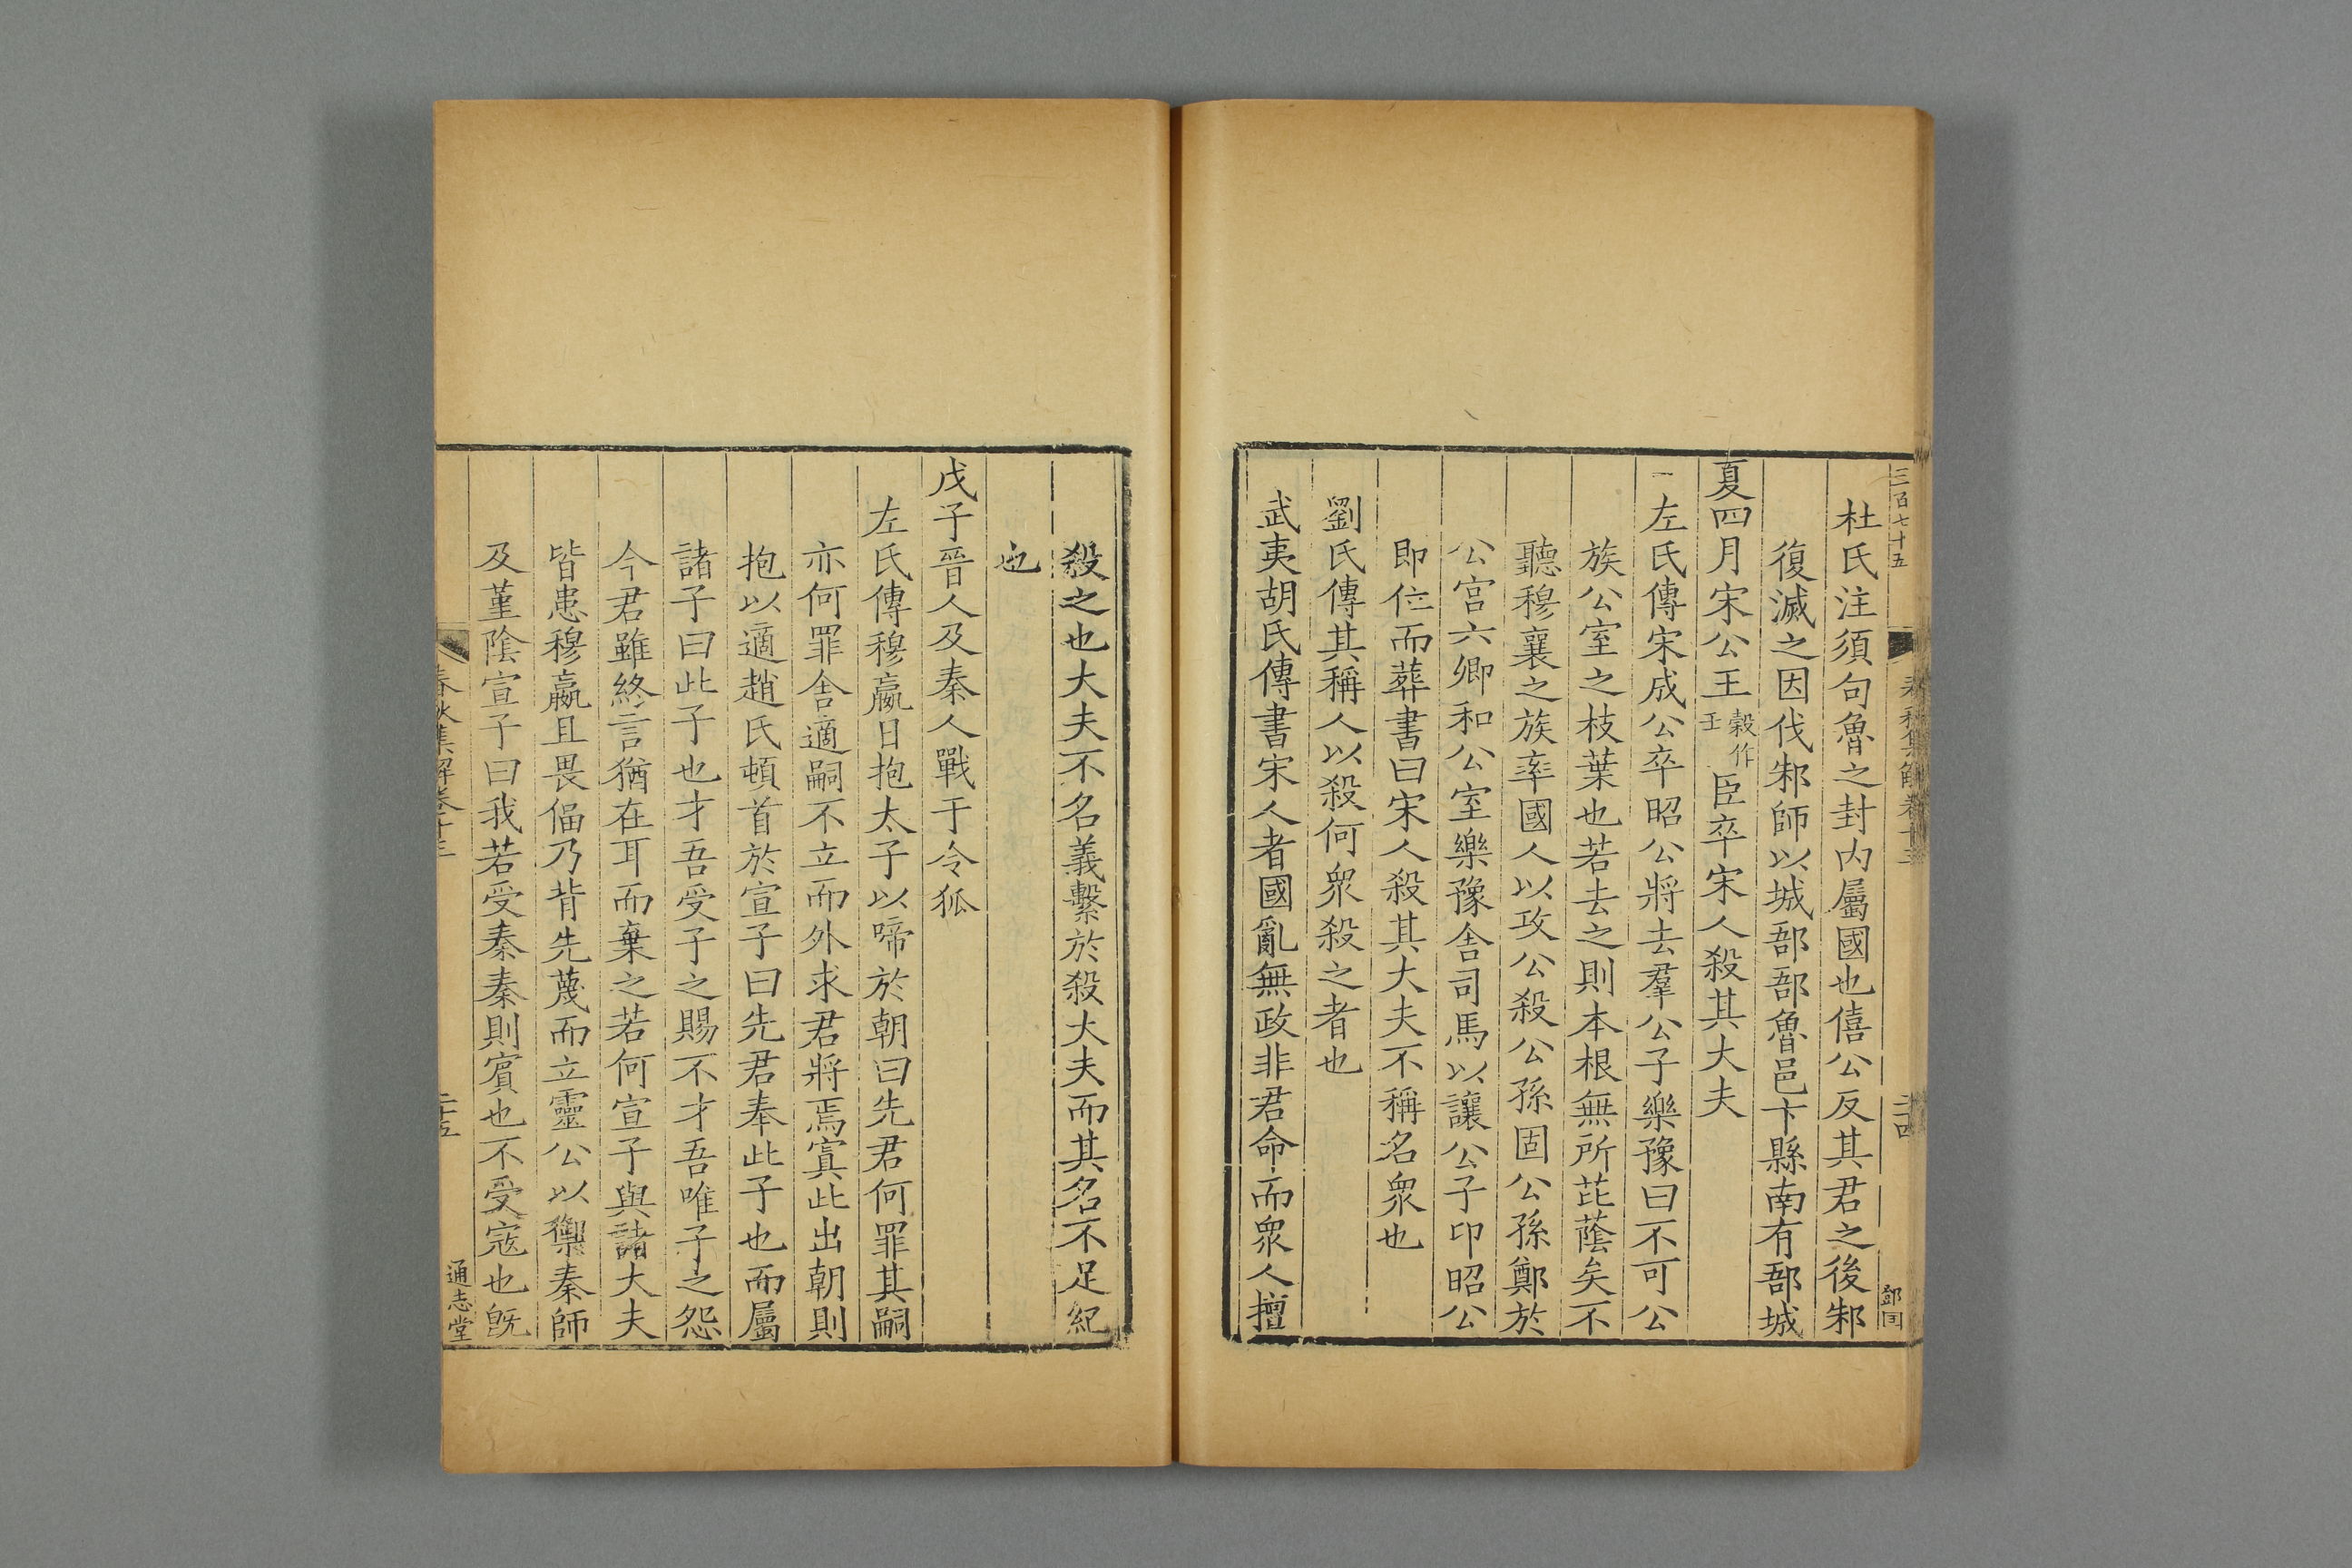 三百七十五
春秋集解卷十三
二十四
杜氏注須句魯之封内屬國也僖公反其君之後邾
復滅之因伐邾師以城郚郚魯邑卞縣南有郚城
夏四月宋公王穀作壬臣卒宋人殺其大夫
左氏傳宋成公卒昭公將去羣公子樂豫曰不可公
族公室之枝葉也若去之則本根無所芘蔭矣不
聽穆襄之族率國人以攻公殺公孫固公孫鄭於
公宫六卿和公室樂豫舍司馬以讓公子卬昭公
即位而葬書曰宋人殺其大夫不稱名衆也
劉氏傳其稱人以殺何衆殺之者也
武夷胡氏傳書宋人者國亂無政非君命而衆人擅
殺之也大夫不名義繫於殺大夫而其名不足紀
也
戊子晉人及秦人戰于令狐
左氏傳穆嬴日抱太子以啼於朝曰先君何罪其嗣
亦何罪舍適嗣不立而外求君將焉寘此出朝則
抱以適趙氏頓首於宣子曰先君奉此子也而屬
諸子曰此子也才吾受子之賜不才吾唯子之怨
今君雖終言猶在耳而棄之若何宣子與諸大夫
皆患穆嬴且畏偪乃背先蔑而立靈公以禦秦師
及菫隂宣子曰我若受秦秦則賔也不受寇也旣
春秋集解卷十三
二十五
通志堂